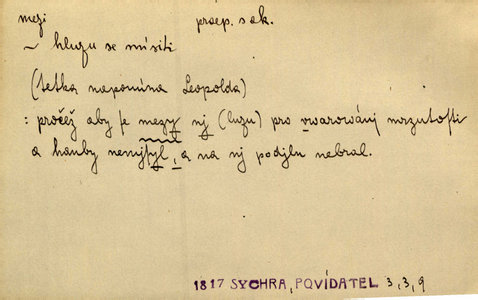 mezi praep. s ak.
~ hluzu se mísiti
(tetka napomíná Leopolda)
: pročěž aby ſe mezy nj (luzu) pro vwarowánj mrzutoſti
a hanby nemjſyl, a na nj podjlu nebral.
1817 SYCHRA, POVÍDATEL 3, 3, 9